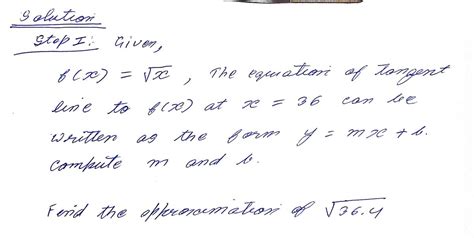 Solution
Step I: Given,
f(x) = √x , The equation of tangent
line to f(x) at x = 36 can be
written as the form y = mx + b.
compute m and b.
Find the approximation of √36.4